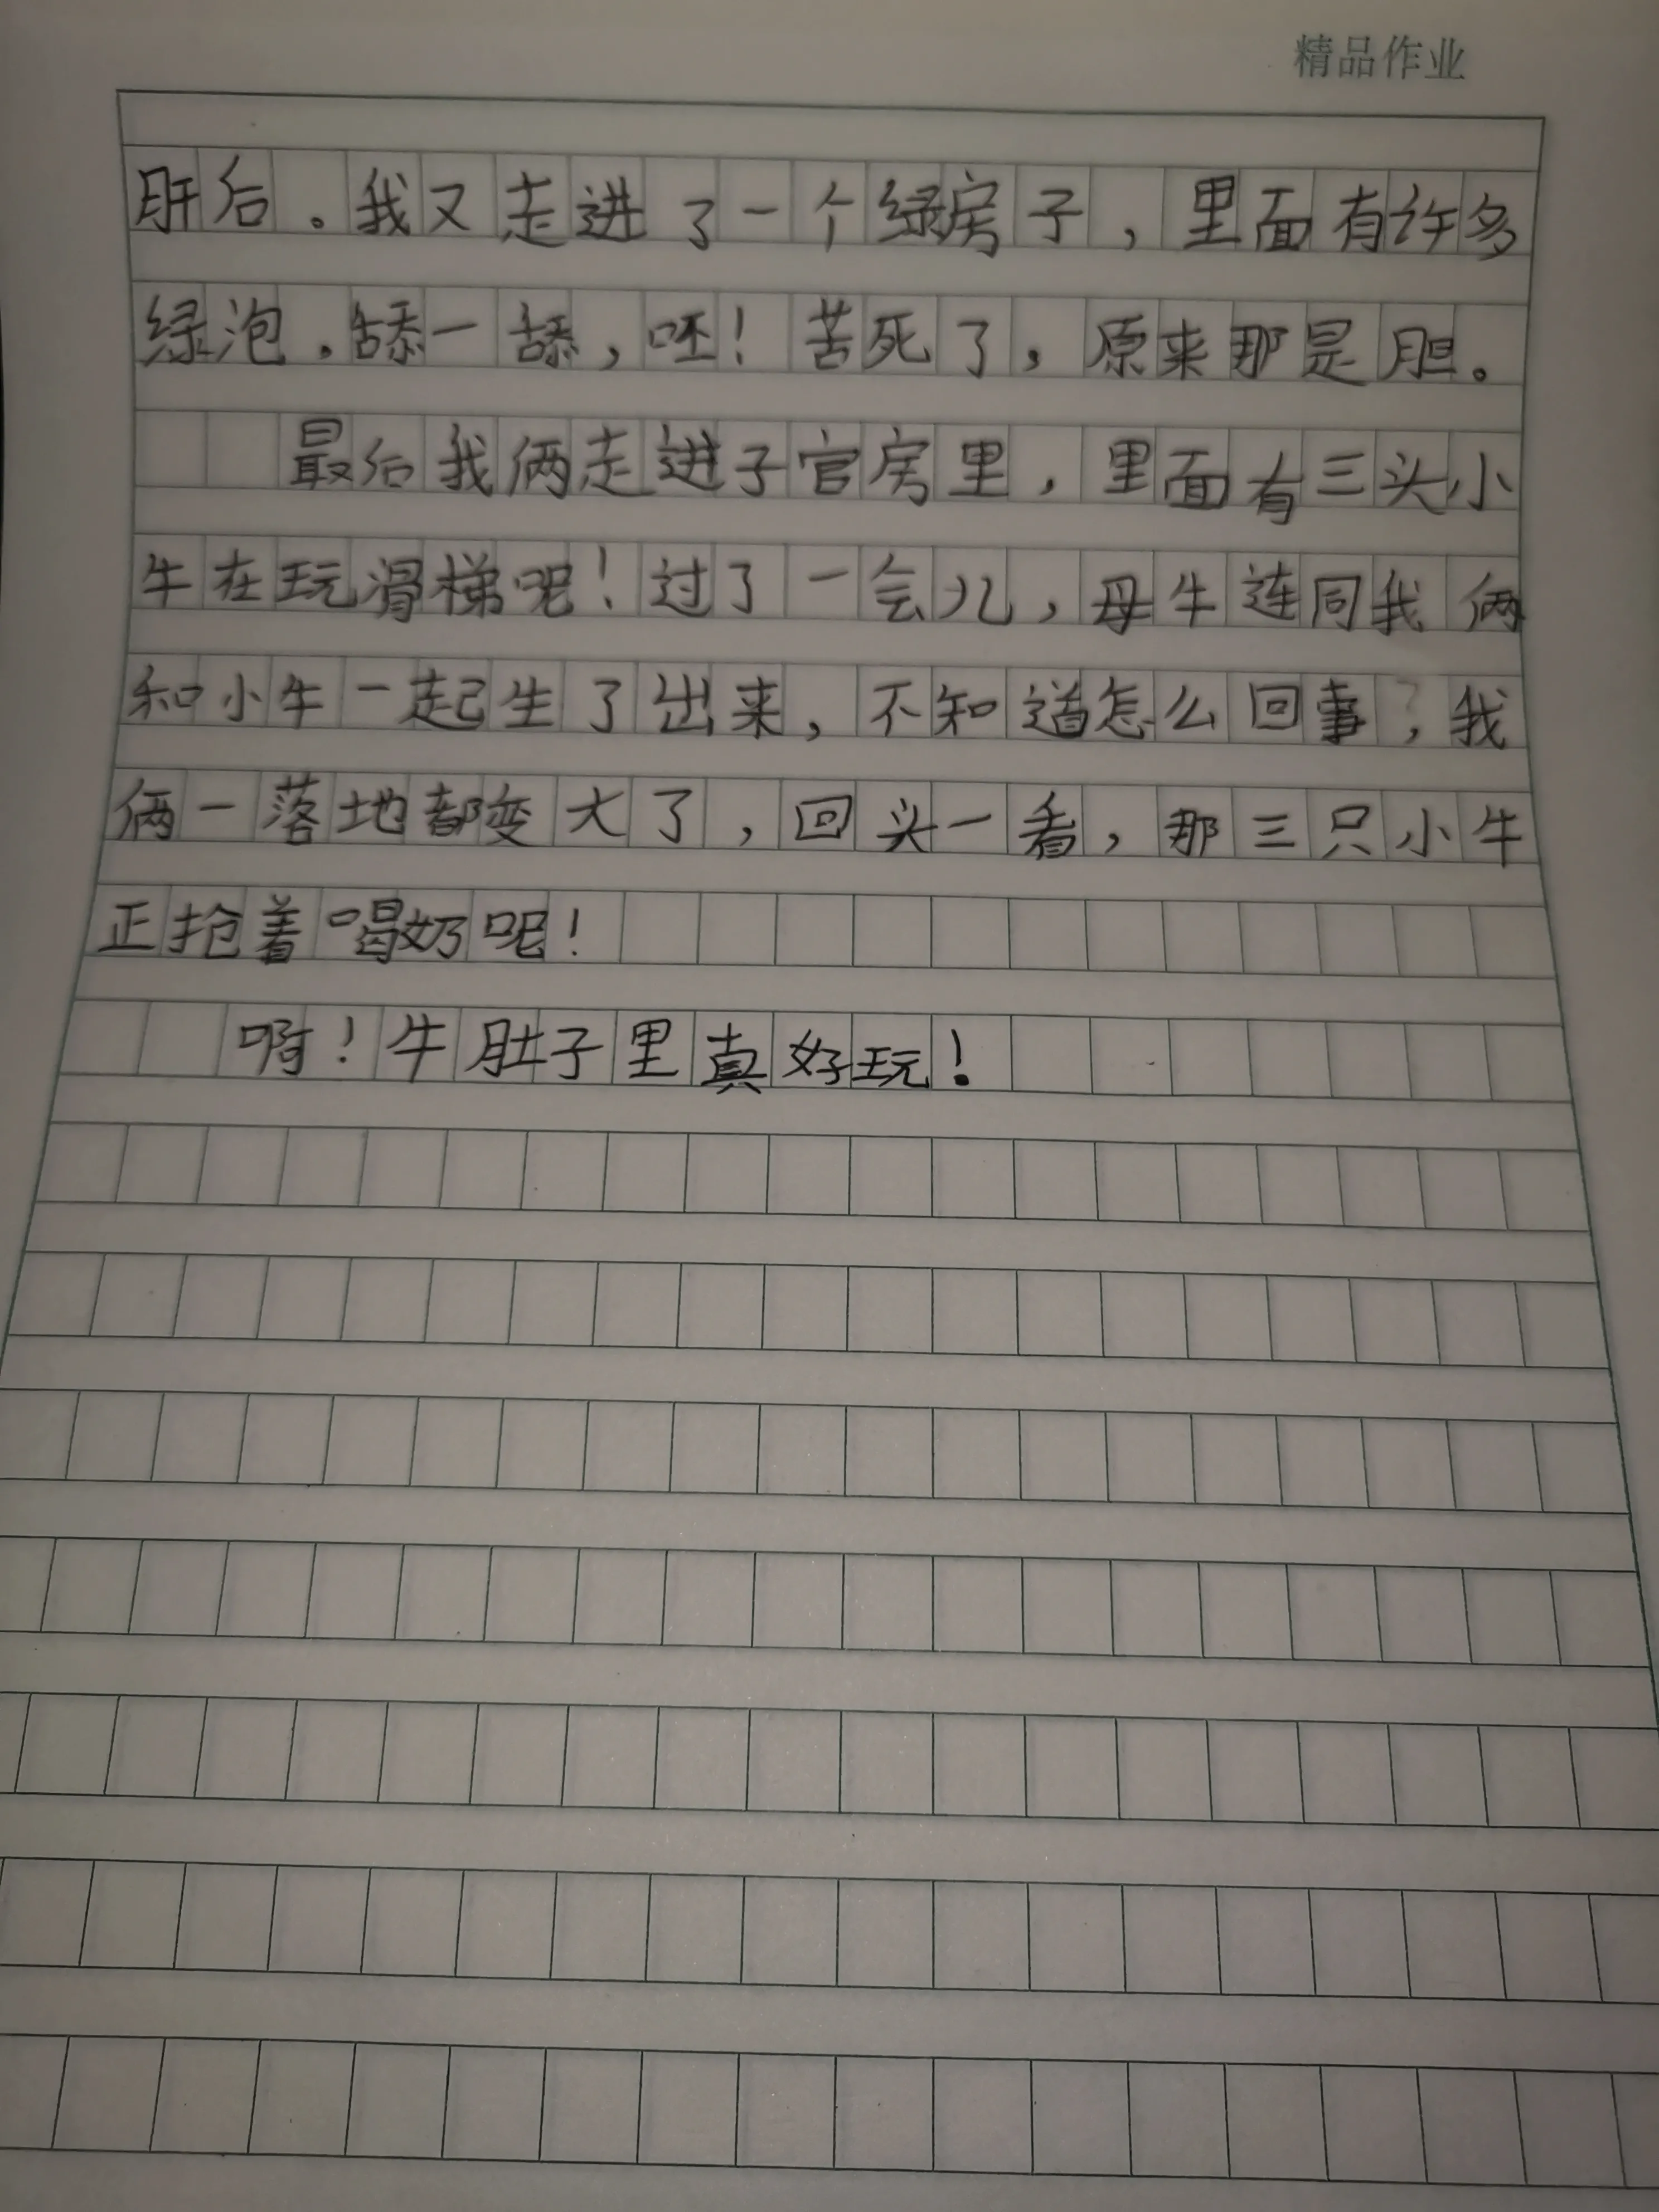 精品作业
肝后。我又走进了一个绿房子，里面有许多
绿泡，舔一舔，呸！苦死了，原来那是胆。
最后我俩走进子官房里，里面有三头小
牛在玩滑梯呢！过了一会儿，母牛连同我俩
和小牛一起生了出来，不知道怎么回事，我
俩一落地都变大了，回头一看，那三只小牛
正抢着喝奶呢！
啊！牛肚子里真好玩！